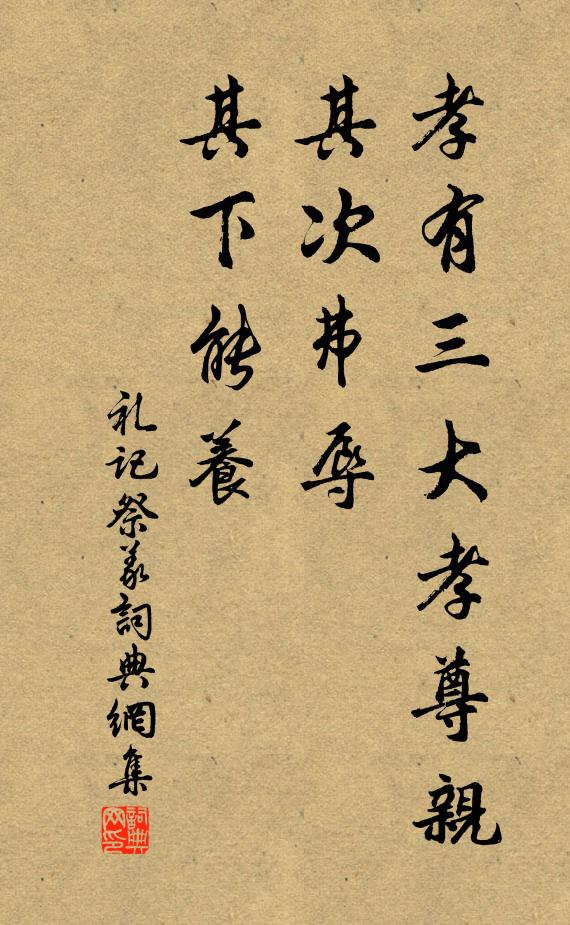 孝有三大孝尊親
其次弗辱
其下能養
礼記祭義詞典網集
詞典
网印